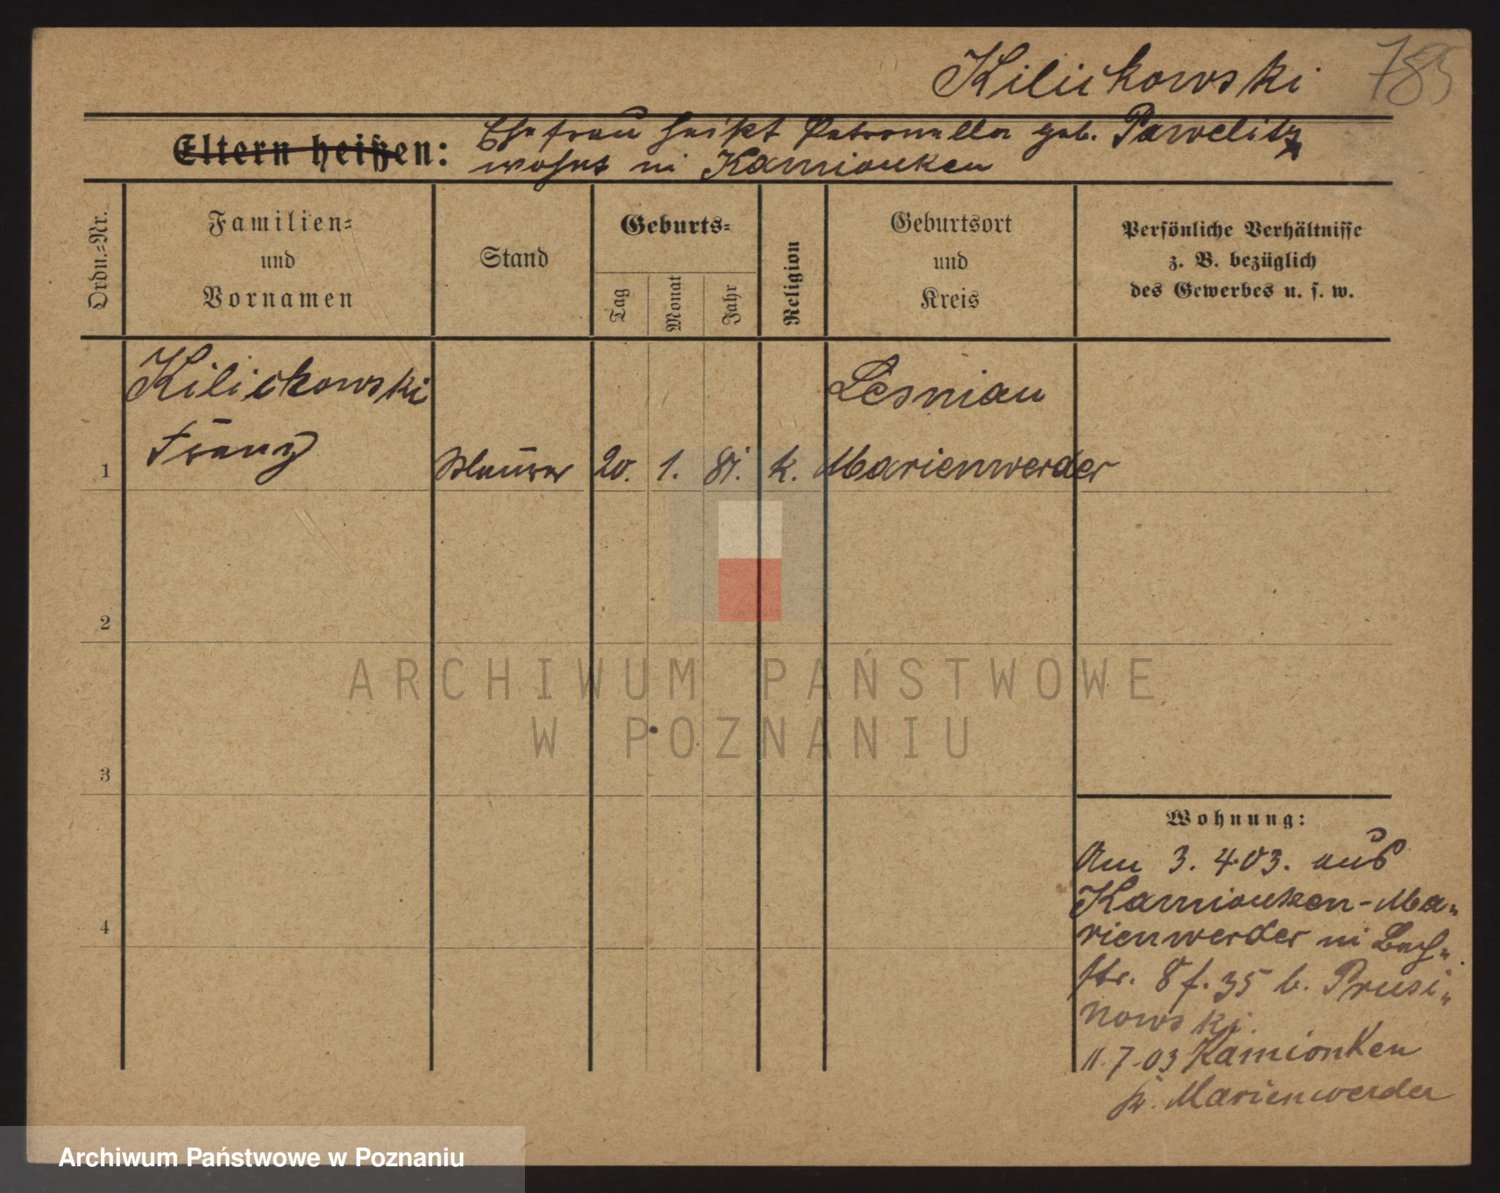 Kilickowski 785
Eltern heißen: Ehefrau heißt Petronella geb. Pawelitz
wohnt in Kamionken
Ordn.-Nr.
Familien-
und
Vornamen
Stand
Geburts-
Tag
Monat
Jahr
Religion
Geburtsort
und
Kreis
Persönliche Verhältnisse
z. B. bezüglich
des Gewerbes u. s. w.
Kilickowski Lesniau
Franz
1 Maurer 20. 1. 81. k. Marienwerder
2
ARCHIWUM PAŃSTWOWE
W POZNANIU
3
Wohnung:
Am 3.4.03. aus
Kamionken-Ma-
4
rienwerder in
str. 8 35 b. Prusi-
nowski.
11.7.03 Kamionken
Kr. Marienwerder
Archiwum Państwowe w Poznaniu